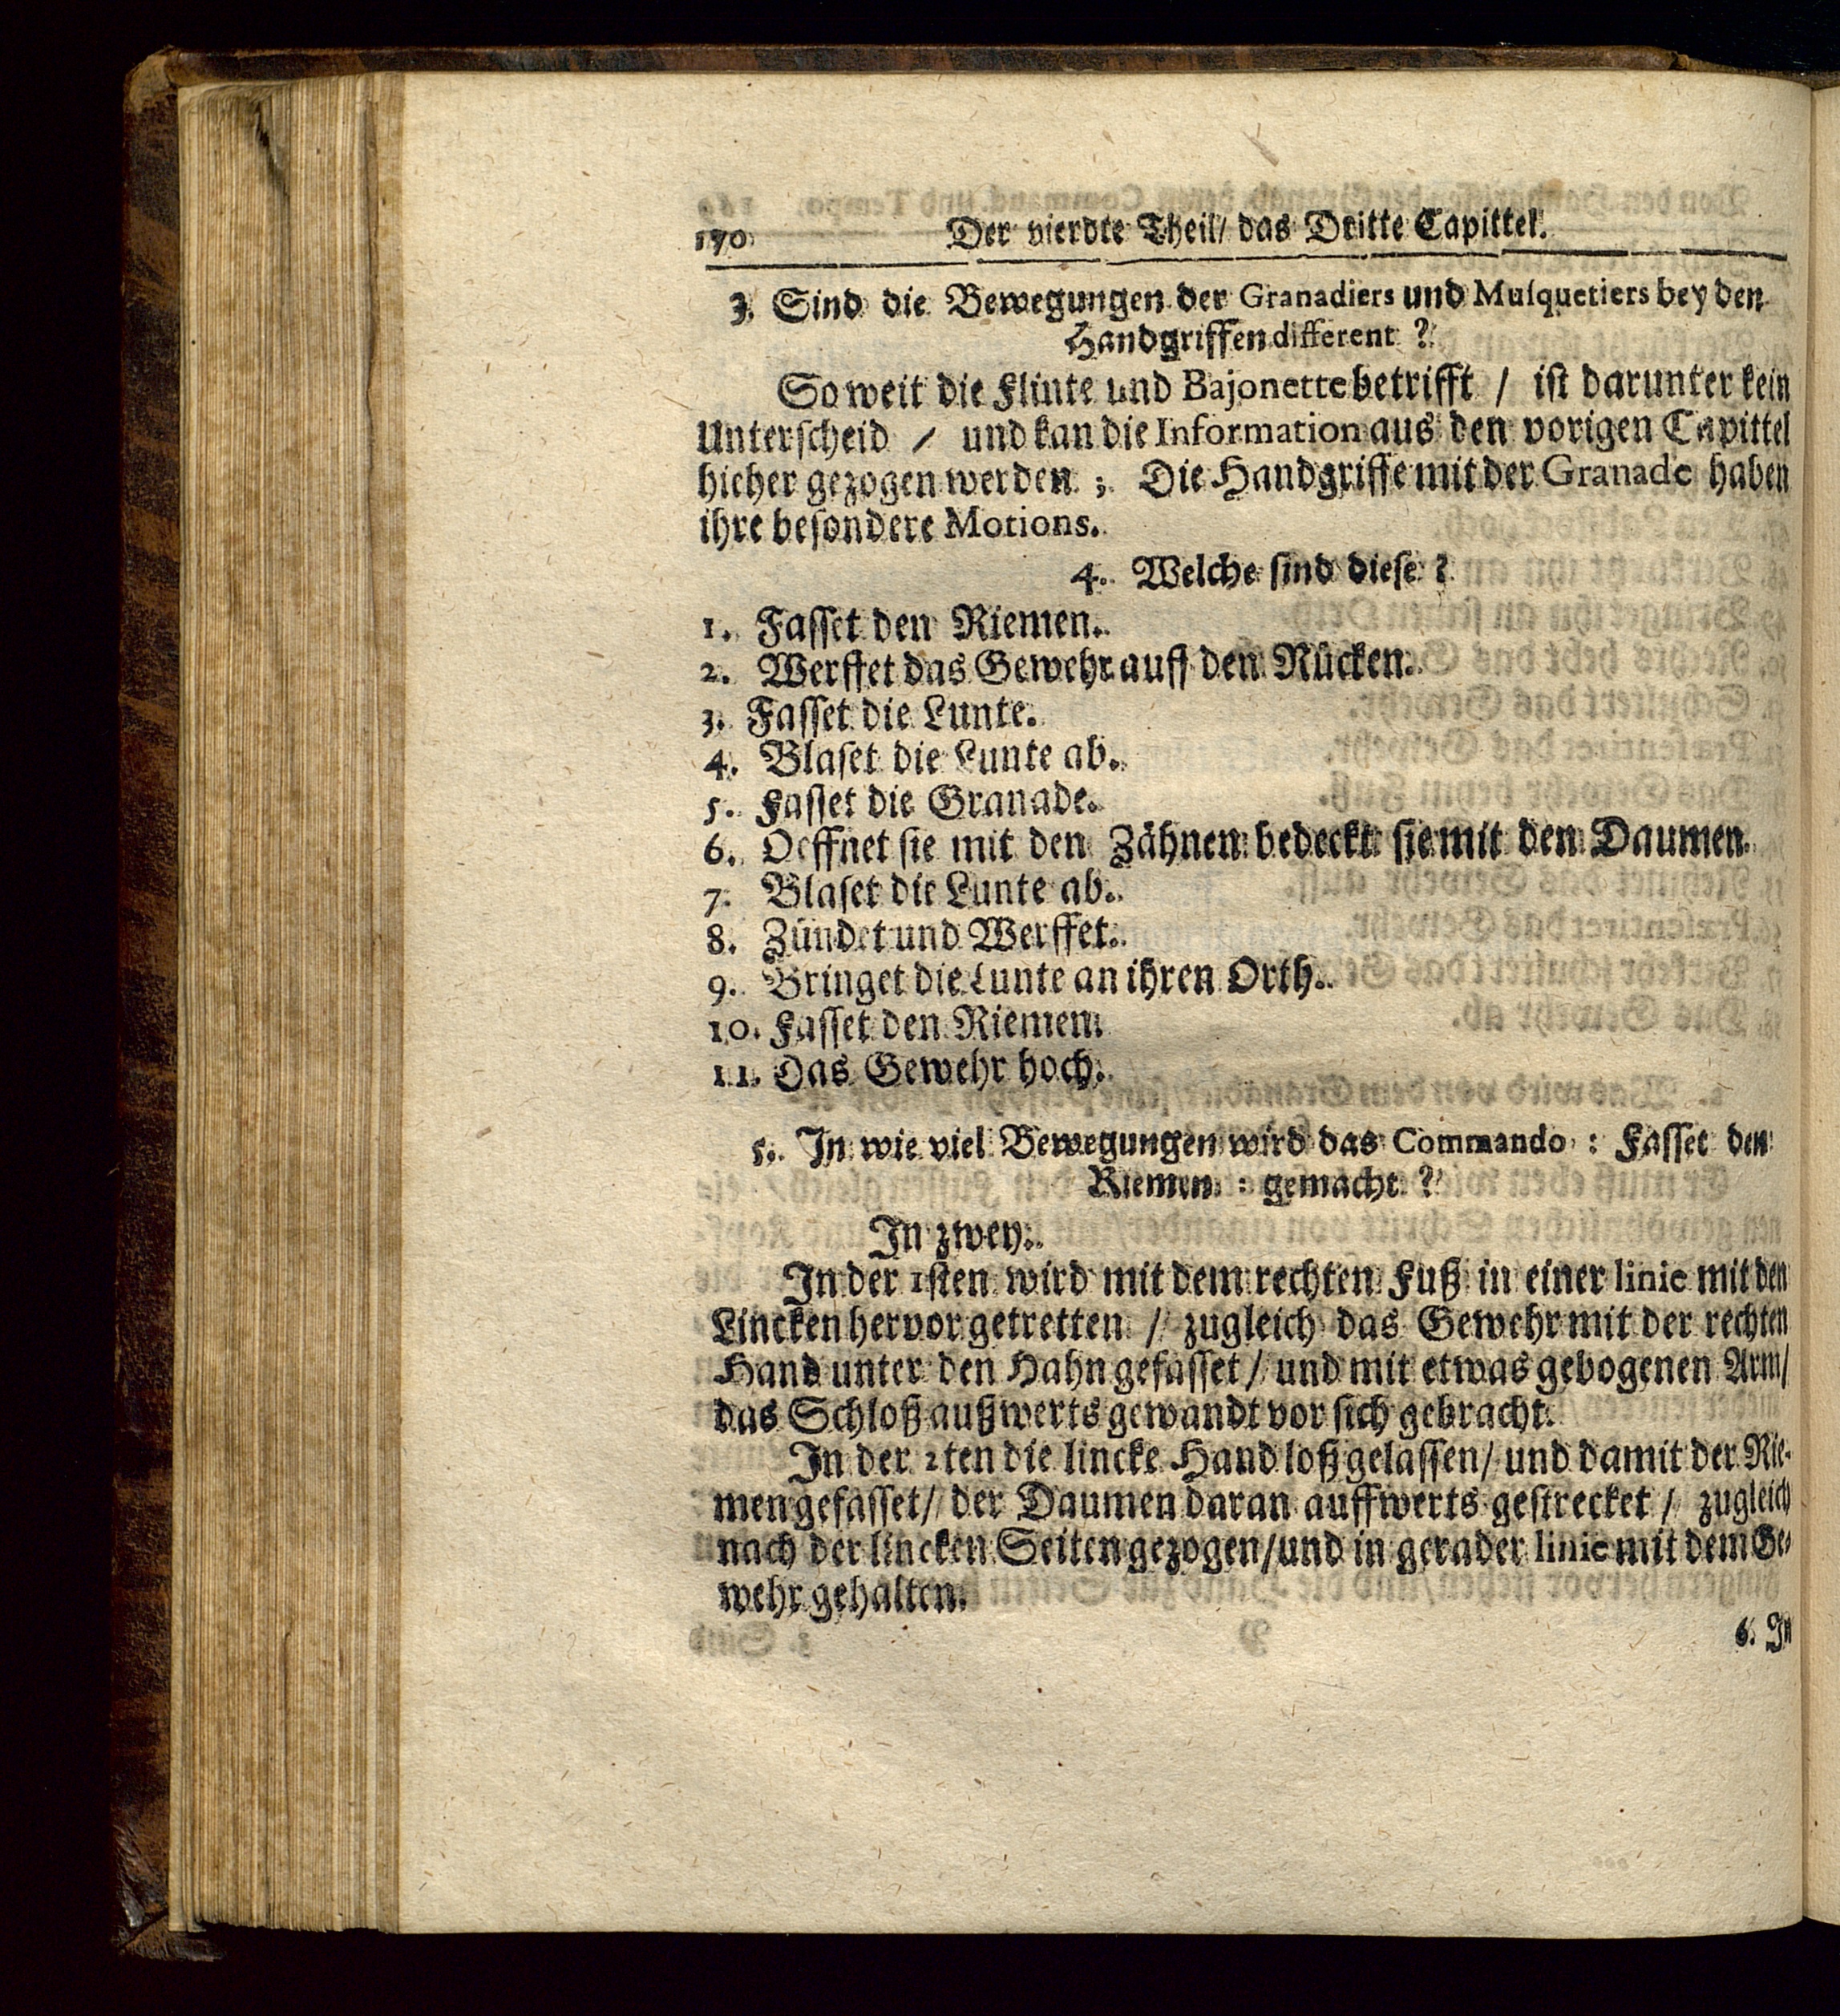 170 Der vierdte Theil/ das Dritte Capittel.
3. Sind die Bewegungen der Granadiers und Musquetiers bey den
Handgriffen different ?
So weit die Flinte und Bajonette betrifft / ist darunter kein
Unterscheid / und kan die Information aus den vorigen Capittel
hieher gezogen werden ; Die Handgriffe mit der Granade haben
ihre besondere Motions.
4. Welche sind diese ?
1. Fasset den Riemen.
2. Werffet das Gewehr auff den Rücken.
3. Fasset die Lunte.
4. Blaset die Lunte ab.
5. Fasset die Granade.
6. Oeffnet sie mit den Zähnen bedeckt sie mit den Daumen.
7. Blaset die Lunte ab.
8. Zündet und Werffet.
9. Bringet die Lunte an ihren Orth.
10. Fasset den Riemen.
11. Das Gewehr hoch.
5. In wie viel Bewegungen wird das Commando : Fasset den
Riemen : gemacht ?
In zwey.
In der 1sten wird mit dem rechten Fuß in einer linie mit den
Lincken hervor getretten / zugleich das Gewehr mit der rechten
Hand unter den Hahn gefasset / und mit etwas gebogenen Arm/
das Schloß außwerts gewandt vor sich gebracht.
In der 2ten die lincke Hand loß gelassen/ und damit der Rie-
men gefasset/ der Daumen daran auffwerts gestrecket / zugleich
nach der lincken Seiten gezogen/und in gerader linie mit dem Ge-
wehr gehalten.
6. In